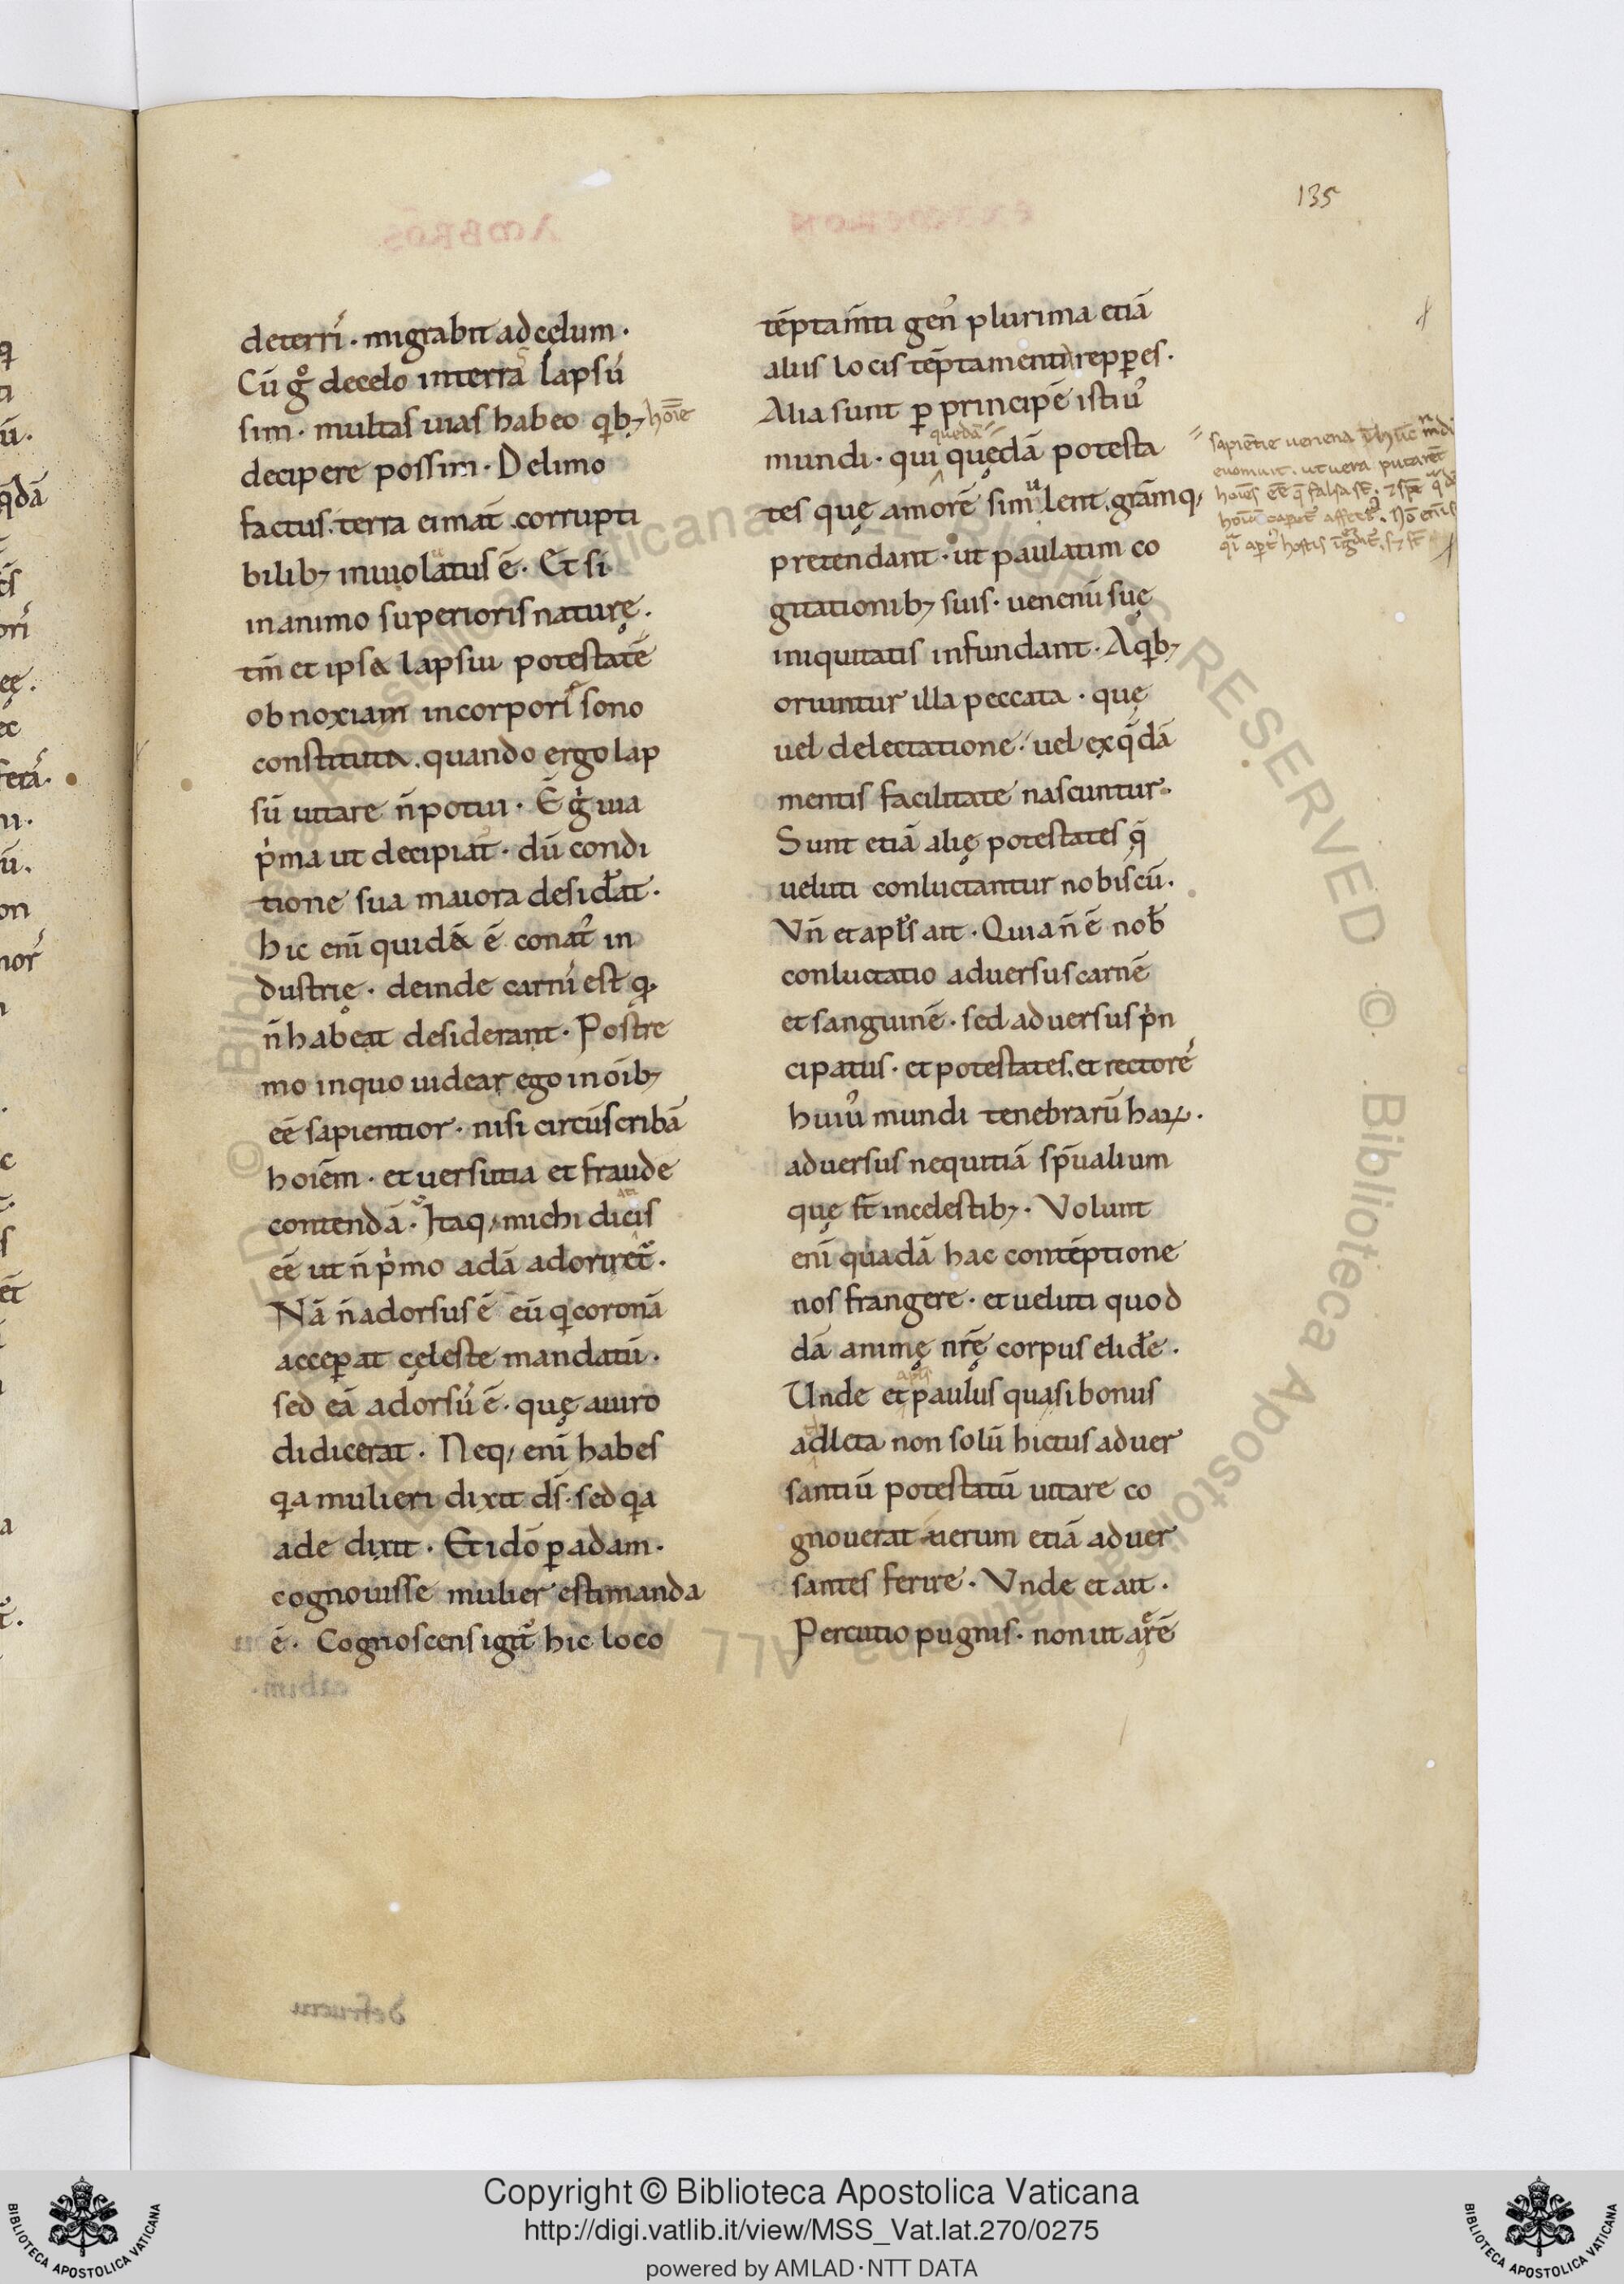 135
deterri᷒. migrabit ad cęlum.
Cū gͦ de celo in terra lapsu᷒
sim. multas uias habeo qibꝫ hoīe
decipere possim. De limo
factus. terra ei mat̄ corrupti
bilibꝫ inuolatus ē. Et si
in animo superioris naturę.
tm̄ et ipsa lapsui potestatē
obnoxiam in corpori᷒ sono
constituta. quando ergo lap
sū uitare n̄ potui. Ē gͥ uia
pͥma ut decipiat᷑. dū condi
tione sua maiora desid̄at.
hic enī quidē ē conat᷒ in
dustrię. deinde carni᷒ est qi
n̄ habeat desiderant. Postre
mo in quo uidear ego in oībꝫ
eē sapientior. nisi circūscribā
hoīem. et uersutia et fraude
contendā. Itaq; michi dicis
eē ut n̄ pͥmo adā adoriret᷑.
Nā n̄ adorsus ē eū qi coronā
acceꝑat cęleste mandatū.
sed eā adorsu᷒ ē. quę a uiro
didicerat. Neq; enī habes
qia mulieri dixit dš. sed qia
ade dixit. Et idō ꝑ adam.
cognouisse mulier estimanda
ē. Cognoscens igit᷑ hic loco
tēptam̄ti gen᷒ plurima etiā
aliis locis tēptamenti repꝑies.
Alia sunt ꝑ principē istiu᷒
quedā
mundi. qui quędā potesta
tes quę amorē simulent. grāmq;
pretendant. ut paulatim co
gitationibꝫ suis. uenenū suę
iniquitatis infundant. A qibꝫ
oriuntur illa peccata. quę
uel delectatione. uel ex qādā
mentis facilitate nascuntur.
Sunt etiā alię potestates q̄
ueluti conluctantur nobiscū.
Vn̄ et apl̄s ait. Quia n̄ ē nob̄
conluctatio aduersus carnē
et sanguinē. sed aduersus pͥn
cipatus. et potestates. et rectore᷒
huiu᷒ mundi tenebrarū haꝝ.
aduersus nequitiā sp̄ualium
quę st̄ in celestibꝫ. Volunt
enī quadā hac contēptione
nos frangere. et ueluti quod
dā animę nrę̄ corpus elid̄e.
apls
Unde et paulus quasi bonus
adleta non solū hictus aduer
santiū potestatū uitare co
gnouerat uerum etiā aduer
santes ferire. Vnde et ait.
Percutio pugnis. non ut aerē
sapiētie uenena
euomuit. ut uera putarēt
hoīes eē q̄ falsa st̄.
Copyright © Biblioteca Apostolica Vaticana
http://digi.vatlib.it/view/MSS_Vat.lat.270/0275
powered by AMLAD·NTT DATA
BIBLIOTECA APOSTOLICA VATICANA
BIBLIOTECA APOSTOLICA VATICANA